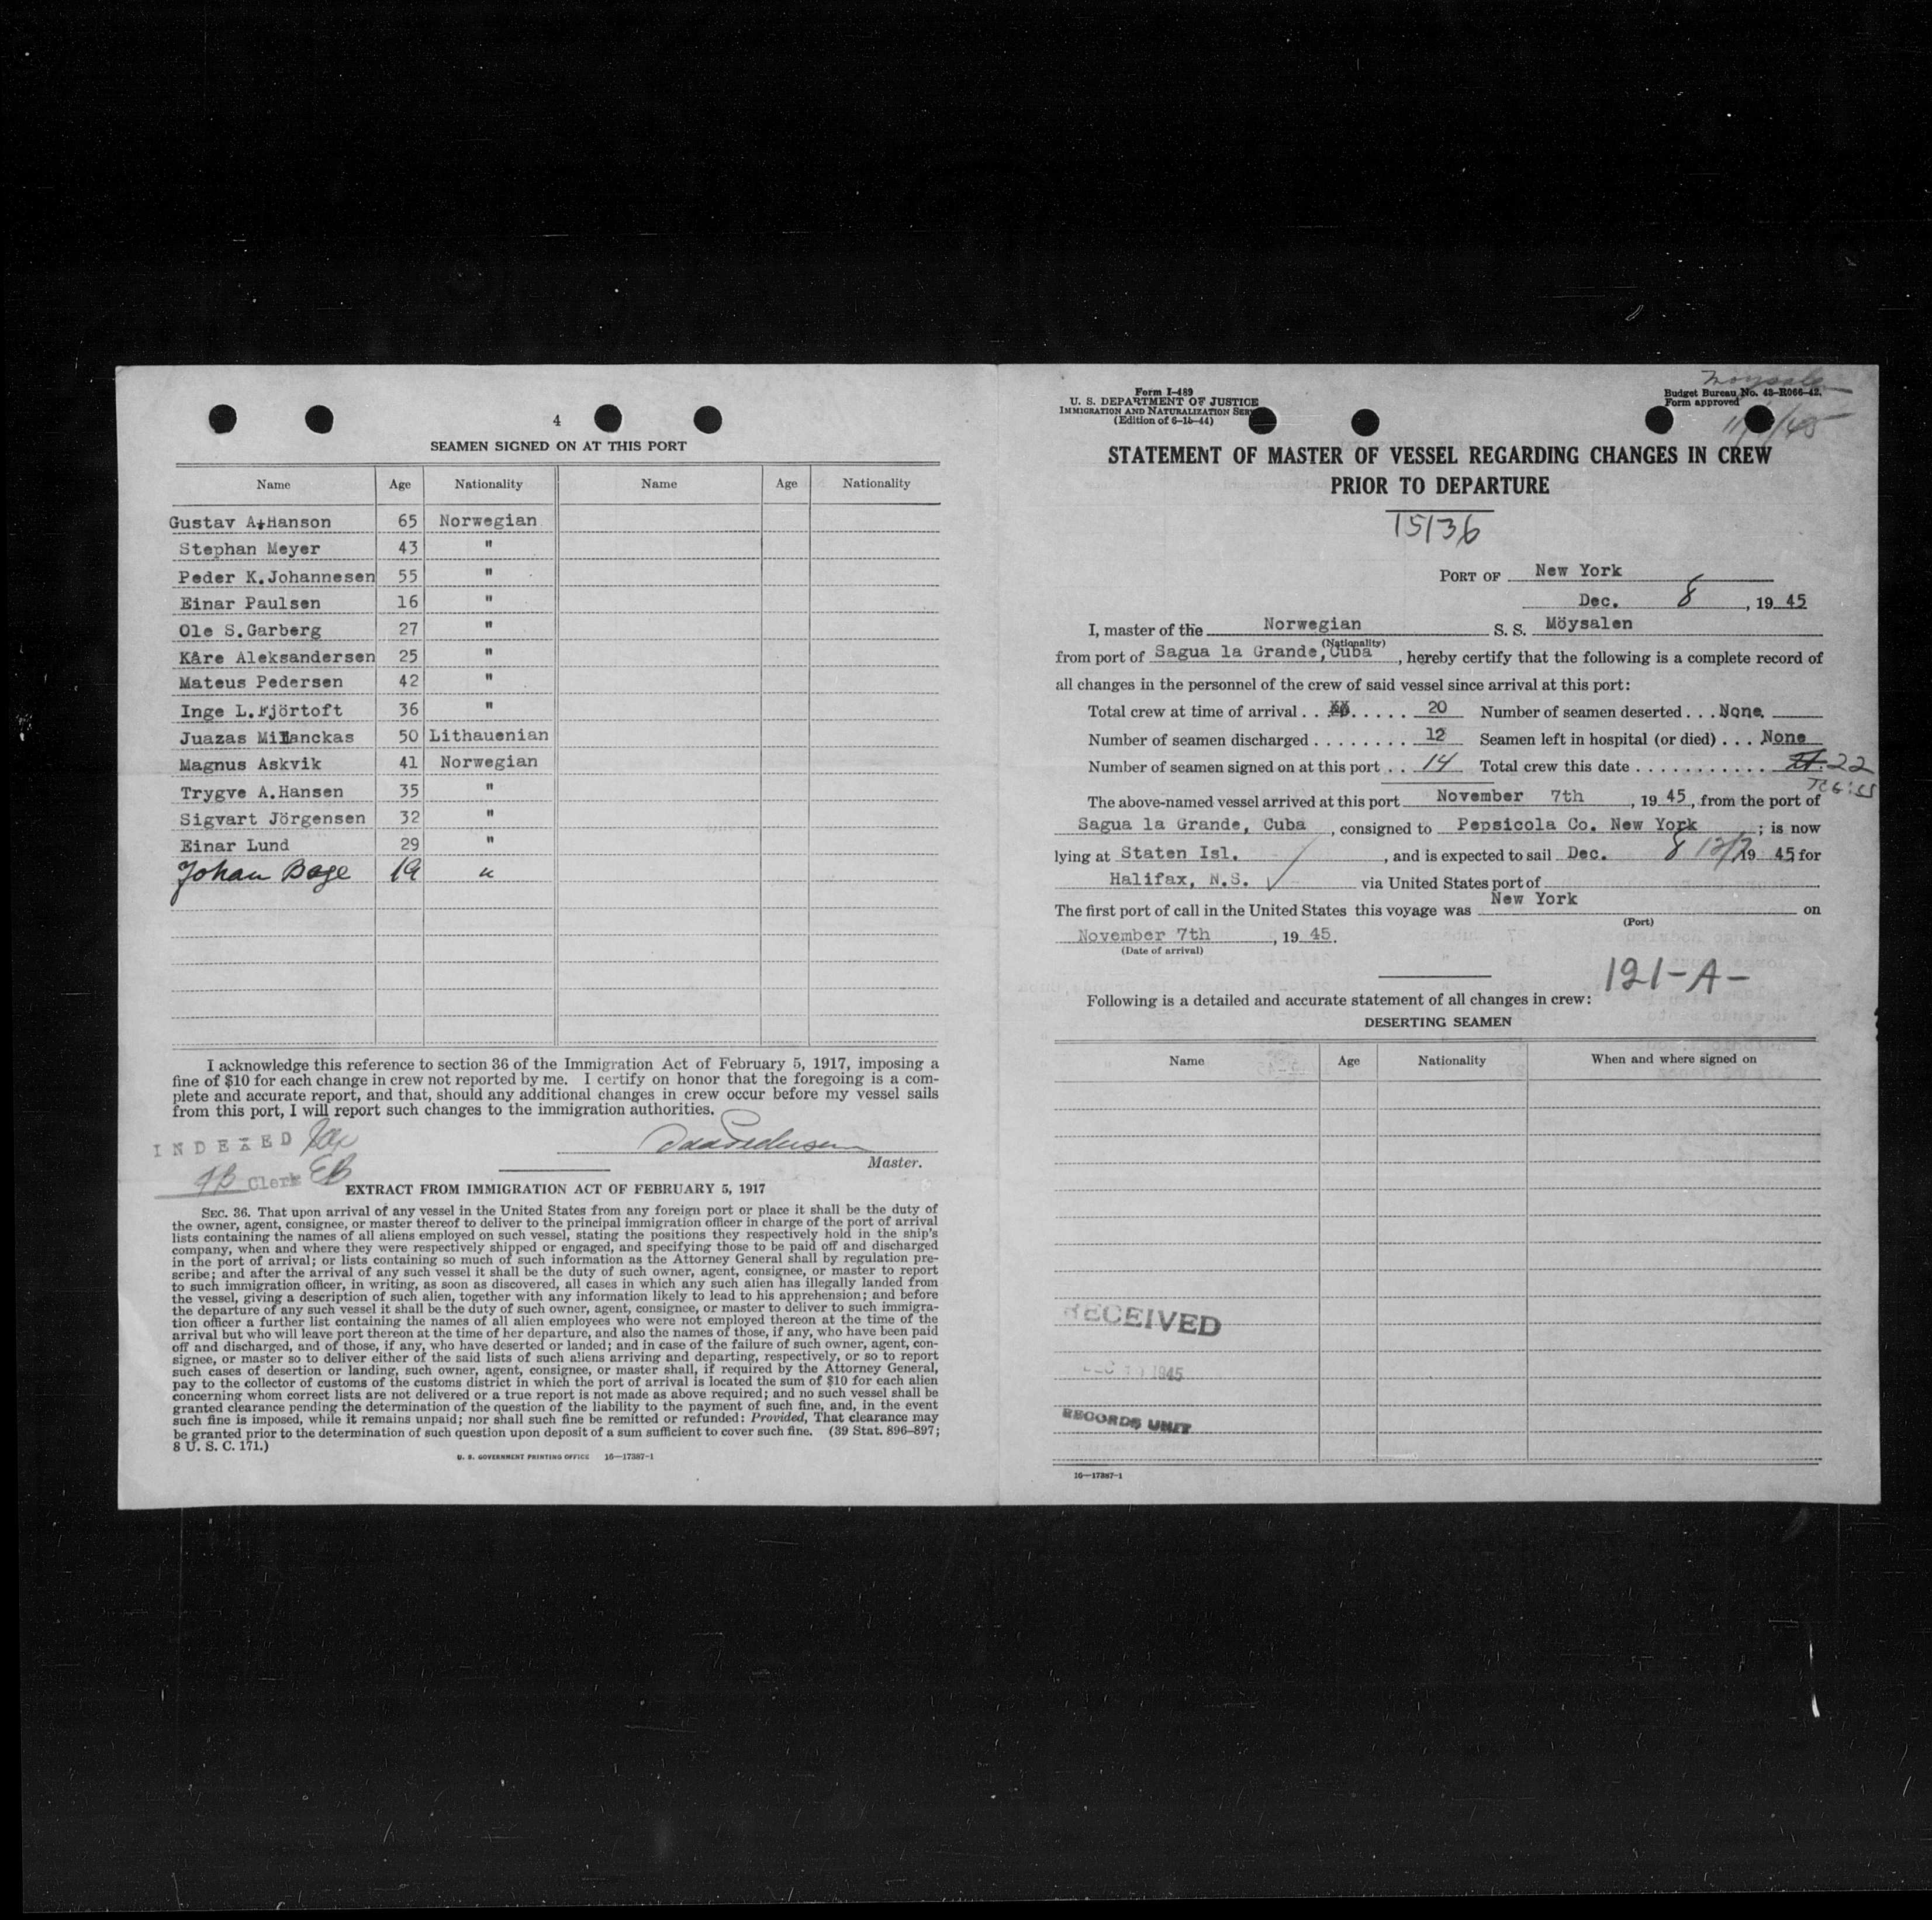 4
SEAMEN SIGNED ON AT THIS PORT
Name Age Nationality Name Age Nationality
Gustav A. Hanson 65 Norwegian
Stephan Meyer 43 "
Peder K.Johannesen 55 "
Einar Paulsen 16 "
Ole S.Garberg 27 "
Kåre Aleksandersen 25 "
Mateus Pedersen 42 "
Inge L.Fjörtoft 36 "
Juazas 50 Lithauenian
Magnus Askvik 41 Norwegian
Trygve A.Hansen 35 "
Sigvart Jörgensen 32 "
Einar Lund 29 "
Johan Boge 19 "
I acknowledge this reference to section 36 of the Immigration Act of February 5, 1917, imposing a
fine of $10 for each change in crew not reported by me. I certify on honor that the foregoing is a com-
plete and accurate report, and that, should any additional changes in crew occur before my vessel sails
from this port, I will report such changes to the immigration authorities.
INDEXED
Master.
Clerk
EXTRACT FROM IMMIGRATION ACT OF FEBRUARY 5, 1917
SEC. 36. That upon arrival of any vessel in the United States from any foreign port or place it shall be the duty of
the owner, agent, consignee, or master thereof to deliver to the principal immigration officer in charge of the port of arrival
lists containing the names of all aliens employed on such vessel, stating the positions they respectively hold in the ship's
company, when and where they were respectively shipped or engaged, and specifying those to be paid off and discharged
in the port of arrival; or lists containing so much of such information as the Attorney General shall by regulation pre-
scribe; and after the arrival of any such vessel it shall be the duty of such owner, agent, consignee, or master to report
to such immigration officer, in writing, as soon as discovered, all cases in which any such alien has illegally landed from
the vessel, giving a description of such alien, together with any information likely to lead to his apprehension; and before
the departure of any such vessel it shall be the duty of such owner, agent, consignee, or master to deliver to such immigra-
tion officer a further list containing the names of all alien employees who were not employed thereon at the time of the
arrival but who will leave port thereon at the time of her departure, and also the names of those, if any, who have been paid
off and discharged, and of those, if any, who have deserted or landed; and in case of the failure of such owner, agent, con-
signee, or master so to deliver either of the said lists of such aliens arriving and departing, respectively, or so to report
such cases of desertion or landing, such owner, agent, consignee, or master shall, if required by the Attorney General,
pay to the collector of customs of the customs district in which the port of arrival is located the sum of $10 for each alien
concerning whom correct lists are not delivered or a true report is not made as above required; and no such vessel shall be
granted clearance pending the determination of the question of the liability to the payment of such fine, and, in the event
such fine is imposed, while it remains unpaid; nor shall such fine be remitted or refunded: Provided, That clearance may
be granted prior to the determination of such question upon deposit of a sum sufficient to cover such fine. (39 Stat. 896–897;
8 U. S. C. 171.)
U. S. GOVERNMENT PRINTING OFFICE 16—17387-1
Moysalen
Form I-489
U. S. DEPARTMENT OF JUSTICE
IMMIGRATION AND NATURALIZATION SER
(Edition of 6-15-44)
Budget Bureau No. 43-R066-42.
Form approved
STATEMENT OF MASTER OF VESSEL REGARDING CHANGES IN CREW
PRIOR TO DEPARTURE
15136
PORT OF New York
Dec. 8, 19 45
I, master of the Norwegian S. S. Möysalen
(Nationality)
from port of Sagua la Grande, Cuba, hereby certify that the following is a complete record of
all changes in the personnel of the crew of said vessel since arrival at this port:
Total crew at time of arrival . . . . . . . . 20 Number of seamen deserted . . . None.
Number of seamen discharged . . . . . . . . 12 Seamen left in hospital (or died) . . . None
Number of seamen signed on at this port . . 14 Total crew this date . . . . . . . . . . . . 22
The above-named vessel arrived at this port November 7th, 19 45, from the port of
Sagua la Grande, Cuba, consigned to Pepsicola Co. New York; is now
lying at Staten Isl., and is expected to sail Dec. 8 19 45 for
Halifax, N.S. via United States port of
The first port of call in the United States this voyage was New York on
(Port)
November 7th, 19 45.
(Date of arrival)
121-A-
Following is a detailed and accurate statement of all changes in crew:
DESERTING SEAMEN
Name Age Nationality When and where signed on
RECEIVED
1945
RECORDS UNIT
16—17387-1